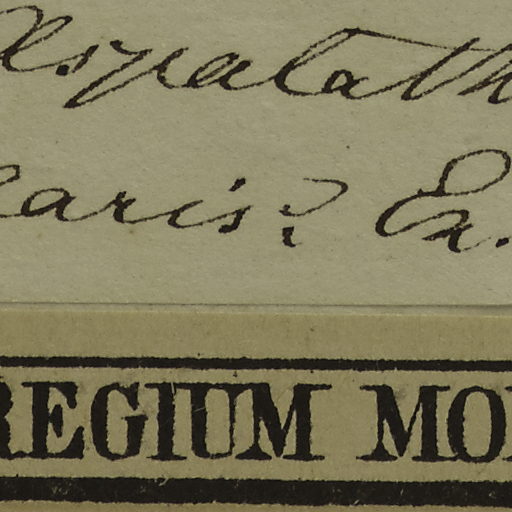 Aspalath
laris? Ex.
REGIUM MO